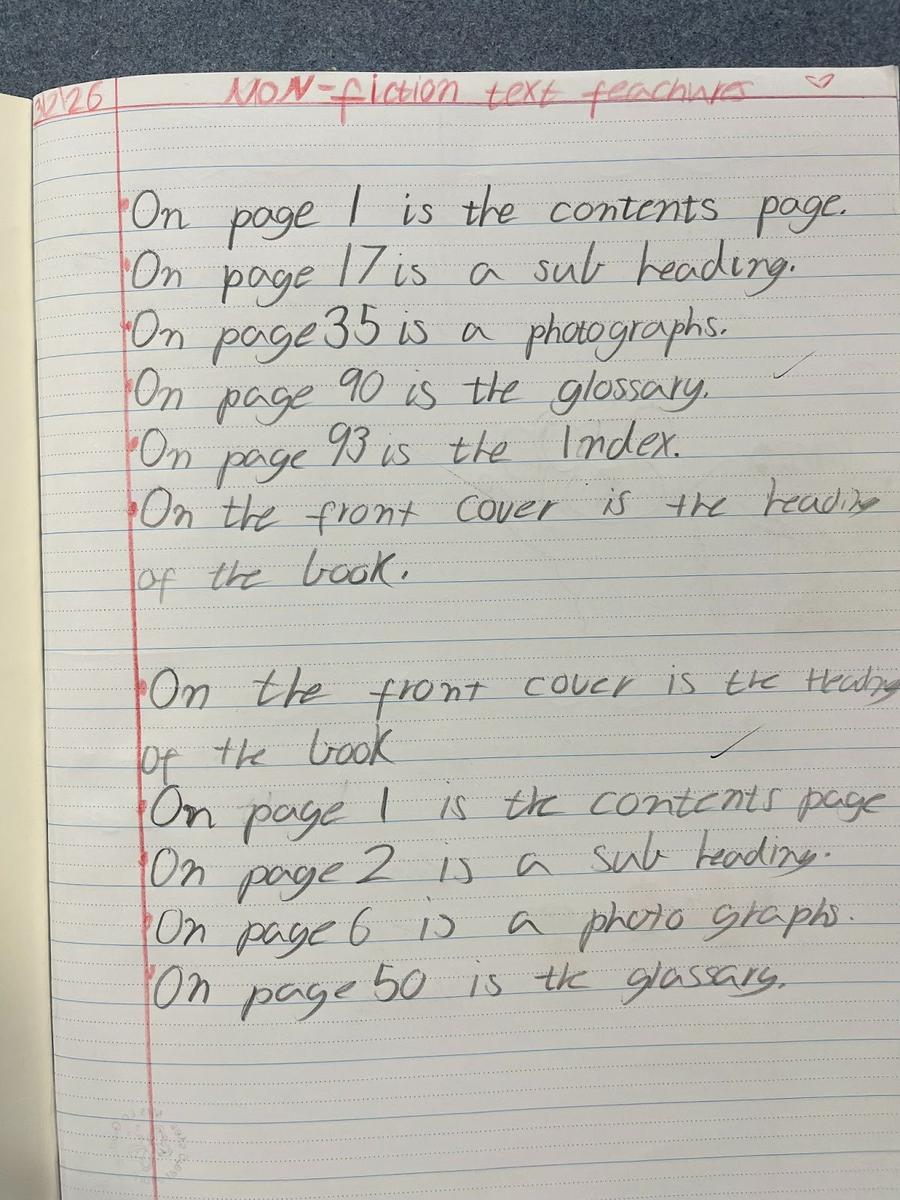 3/2/26
NON-fiction text feachures
On page 1 is the contents page.
On page 17 is a sub heading.
On page 35 is a photographs.
On page 90 is the glossary.
On page 93 is the Index.
On the front cover is the heading
of the book.
On the front cover is the Heading
of the book
On page 1 is the contents page
On page 2 is a sub heading.
On page 6 is a photo graphs.
On page 50 is the glassary.